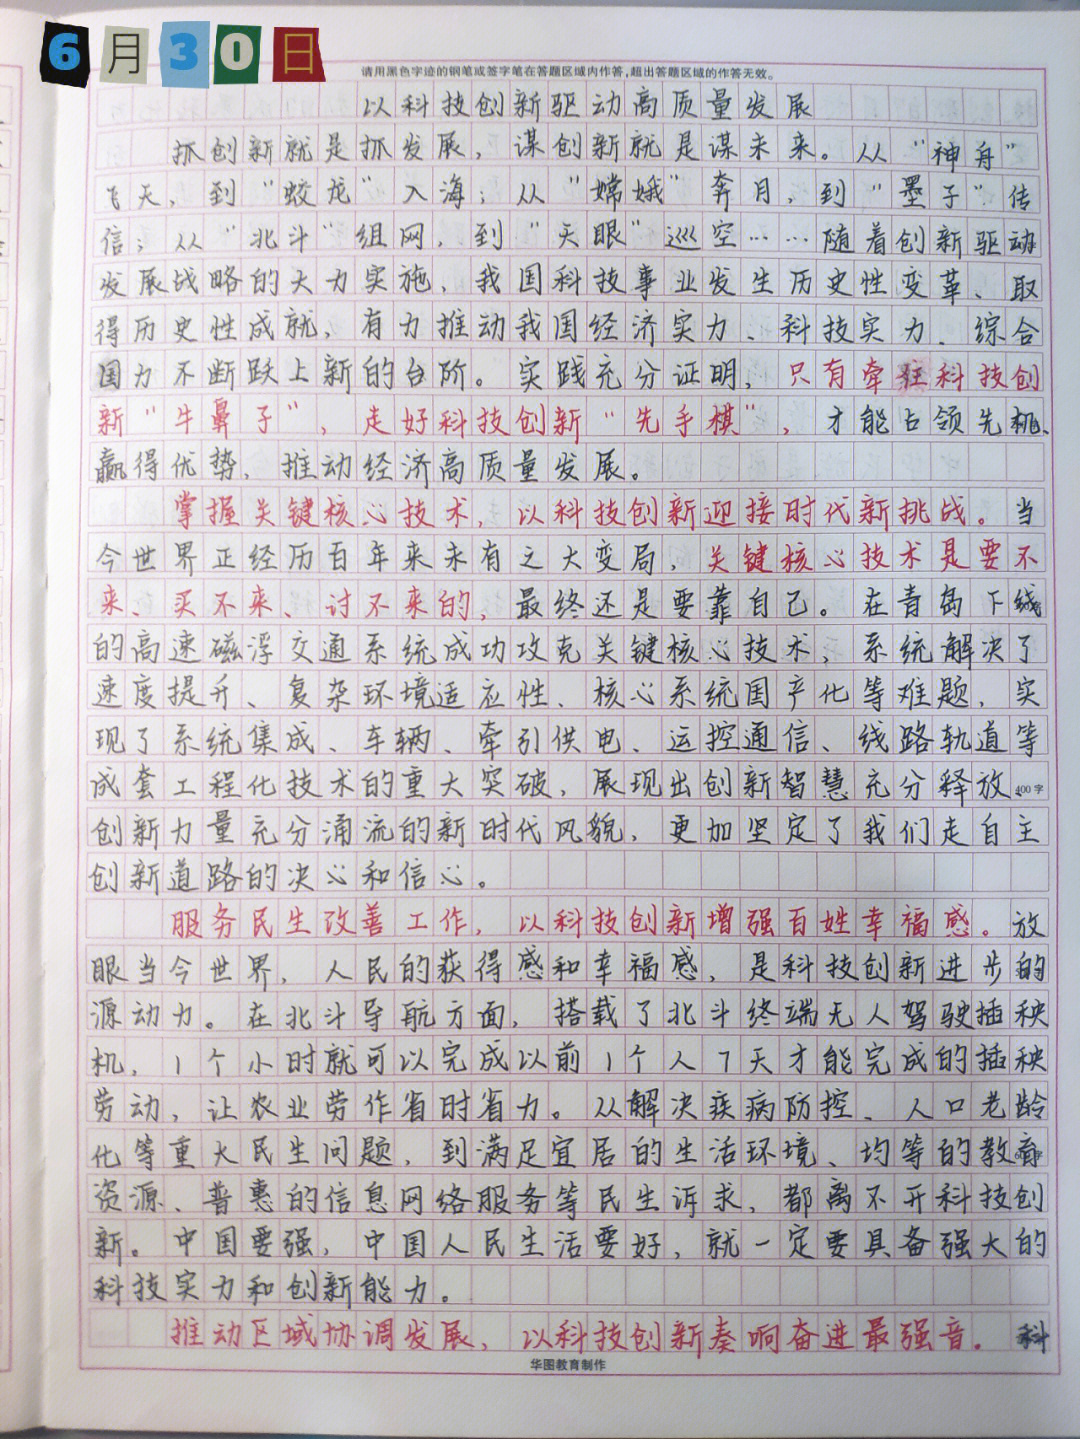 6月30日
请用黑色字迹的钢笔或签字笔在答题区域内作答,超出答题区域的作答无效。
以科技创新驱动高质量发展
抓创新就是抓发展，谋创新就是谋未来。从“神舟”
飞天，到“蛟龙”入海；从“嫦娥”奔月，到“墨子”传
信；从“北斗”组网，到“天眼”巡空……随着创新驱动
发展战略的大力实施，我国科技事业发生历史性变革、取
得历史性成就，有力推动我国经济实力、科技实力、综合
国力不断跃上新的台阶。实践充分证明，只有牵住科技创
新“牛鼻子”，走好科技创新“先手棋”，才能占领先机、
赢得优势，推动经济高质量发展。
掌握关键核心技术，以科技创新迎接时代新挑战。当
今世界正经历百年来未有之大变局，关键核心技术是要不
来、买不来、讨不来的，最终还是要靠自己。在青岛下线
的高速磁浮交通系统成功攻克关键核心技术，系统解决了
速度提升、复杂环境适应性、核心系统国产化等难题，实
现了系统集成、车辆、牵引供电、运控通信、线路轨道等
成套工程化技术的重大突破，展现出创新智慧充分释放、
400字
创新力量充分涌流的新时代风貌，更加坚定了我们走自主
创新道路的决心和信心。
服务民生改善工作，以科技创新增强百姓幸福感。放
眼当今世界，人民的获得感和幸福感，是科技创新进步的
源动力。在北斗导航方面，搭载了北斗终端无人驾驶插秧
机，1个小时就可以完成以前1个人7天才能完成的插秧
劳动，让农业劳作省时省力。从解决疾病防控、人口老龄
化等重大民生问题，到满足宜居的生活环境、均等的教育
资源、普惠的信息网络服务等民生诉求，都离不开科技创
新。中国要强，中国人民生活要好，就一定要具备强大的
科技实力和创新能力。
推动区域协调发展，以科技创新奏响奋进最强音。科
华图教育制作